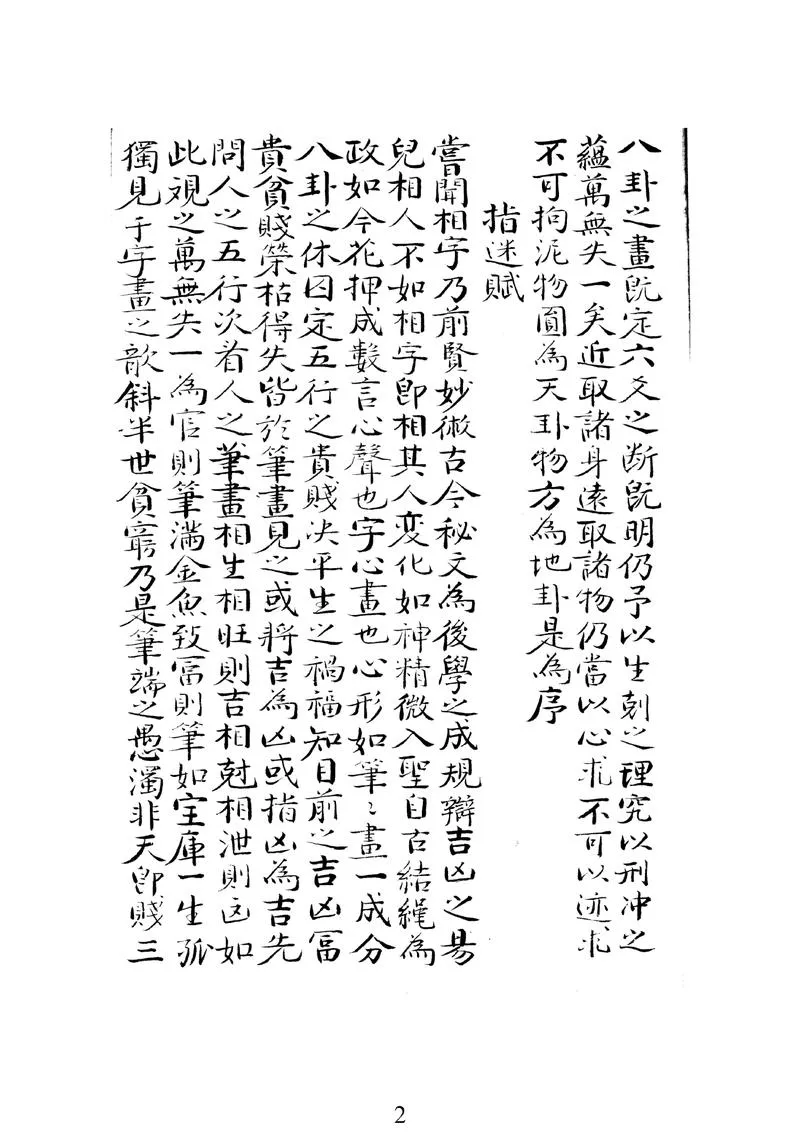 八卦之畫既定六爻之断既明仍予以生剋之理究以刑冲之
蘊萬無失一矣近取諸身遠取諸物仍當以心求不可以迹求
不可拘泥物圓為天卦物方為地卦是為序
指迷賦
嘗聞相字乃前賢妙術古今秘文為後學之成規辯吉凶之昜
兒相人不如相字即相其人変化如神精微入聖自古結繩為
政如今花押成數言心聲也字心畫也心形如筆〻畫一成分
八卦之休囚定五行之貴賤决平生之禍福知目前之吉凶冨
貴貧賤榮枯得失皆於筆畫見之或將吉為凶或指凶為吉先
問人之五行次看人之筆畫相生相旺則吉相尅相泄則凶如
此視之萬無失一為官則筆滿金魚致冨則筆如宝庫一生孤
獨見于字畫之欹斜半世貧窮乃是筆端之愚濁非天即賤三
2